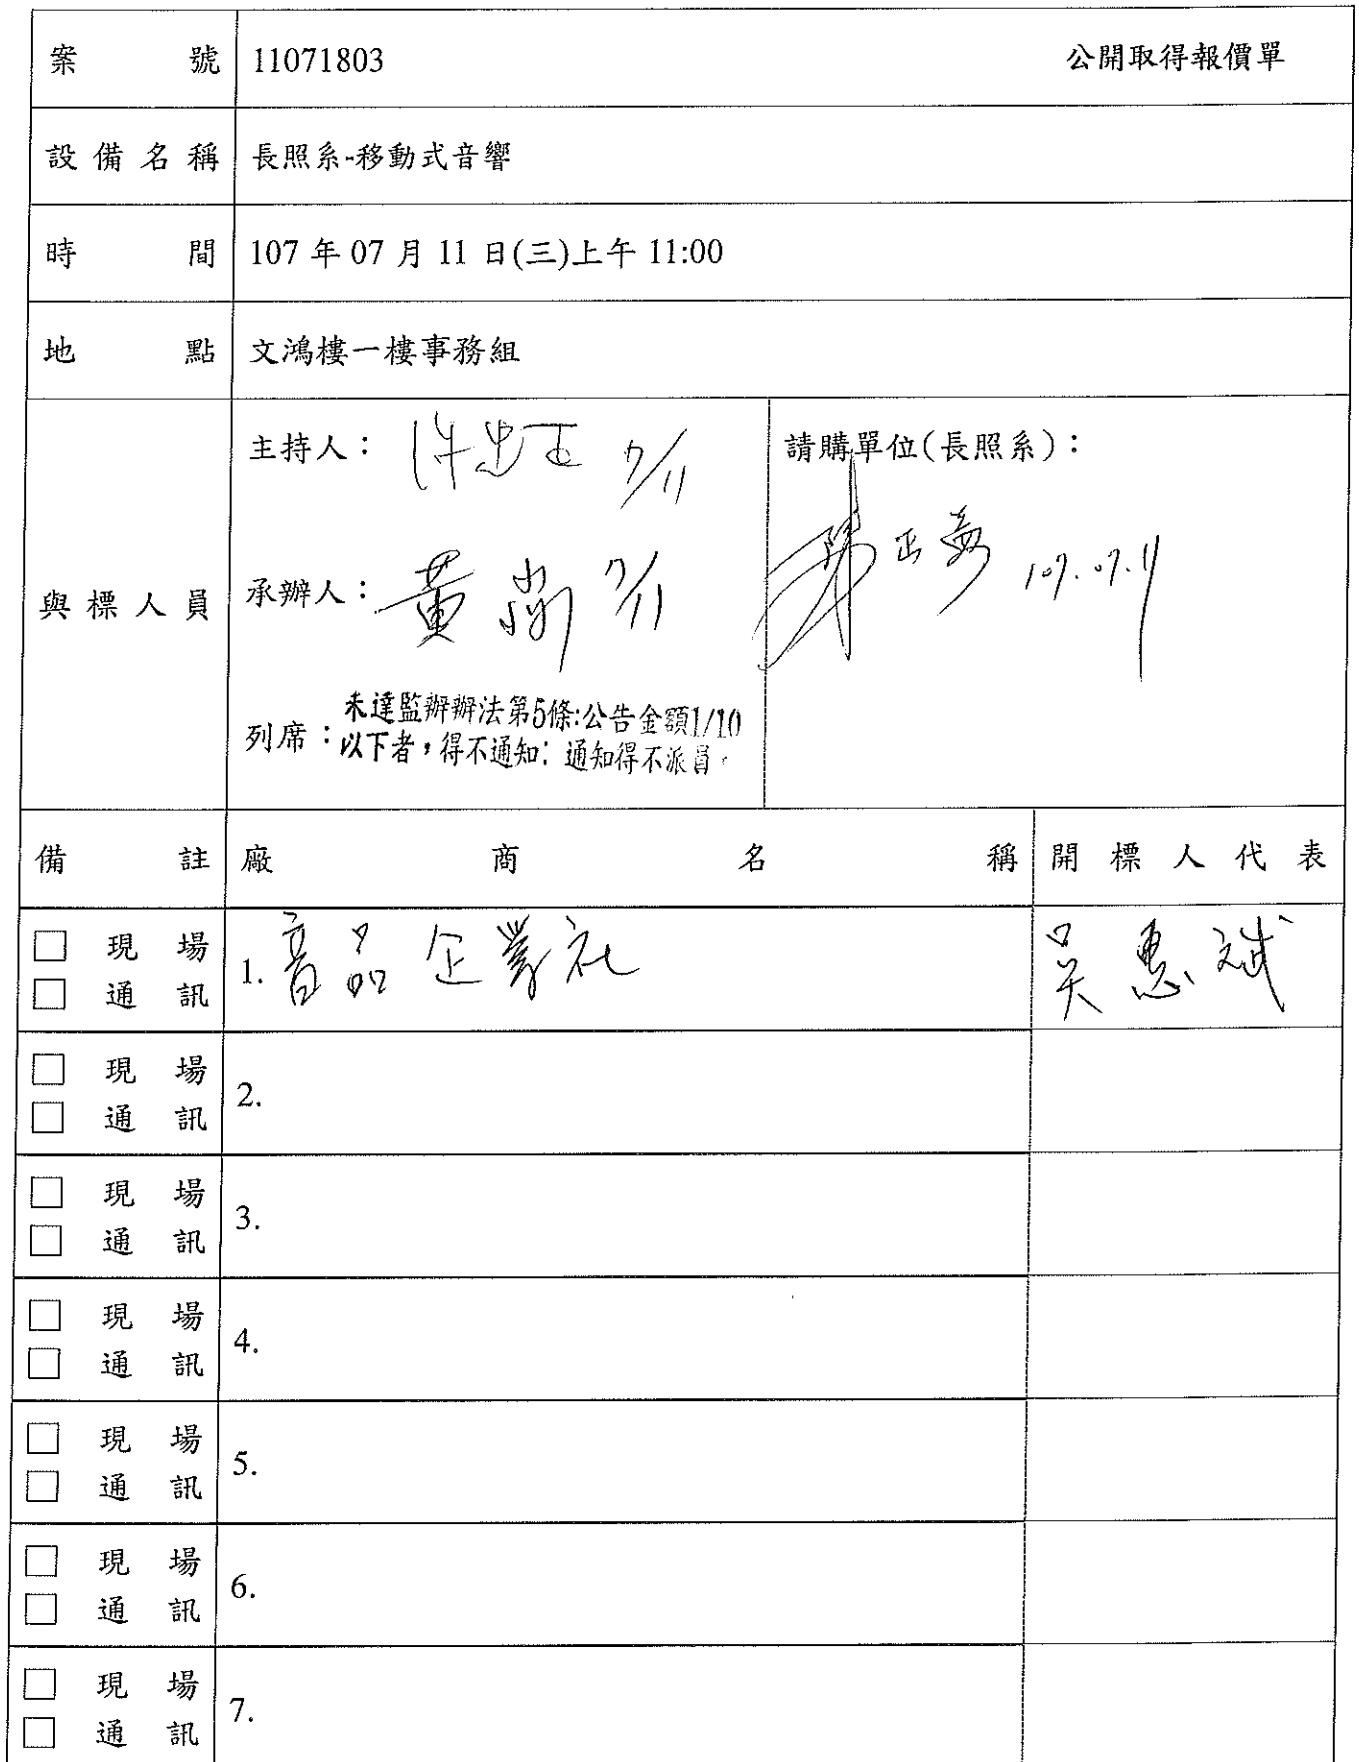 案號 11071803 公開取得報價單
設備名稱 長照系-移動式音響
時間 107 年 07 月 11 日(三)上午 11:00
地點 文鴻樓一樓事務組
與標人員
主持人： 許忠 7/11
請購單位(長照系)：
正 107.07.11
承辦人： 黃 7/11
列席：
未達監辦辦法第5條:公告金額1/10
以下者，得不通知; 通知得不派員。
備註 廠商名稱 開標人代表
□ 現場
□ 通訊
1. 音品企業社 吳惠斌
□ 現場
□ 通訊
2.
□ 現場
□ 通訊
3.
□ 現場
□ 通訊
4.
□ 現場
□ 通訊
5.
□ 現場
□ 通訊
6.
□ 現場
□ 通訊
7.